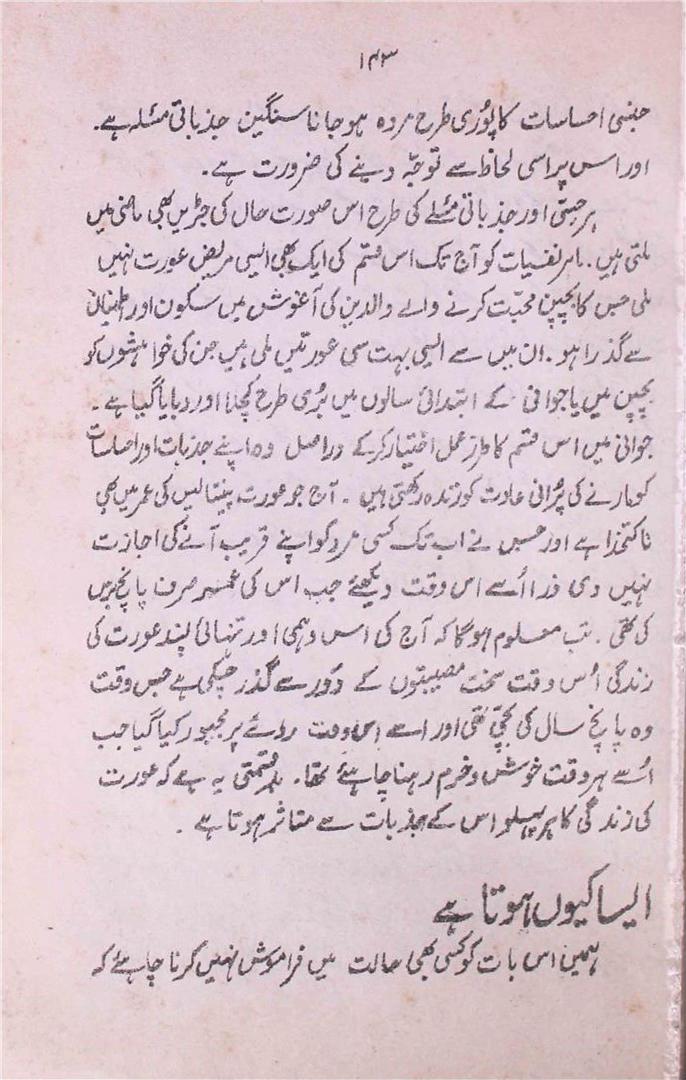 ۱۴۳
جنسی احساسات کا پوُری طرح مردہ ہو جانا سنگین جذباتی مسٔلہ ہے۔
اور اس پر اسی لحاظ سے توجّہ دینے کی ضرورت ہے۔
ہر جنسی اور جذباتی مسٔلے کی طرح اس صورت حال کی جڑیں بھی ماضی میں
ملتی ہیں۔ ماہر نفسیات کو آج تک اس قسم کی ایک بھی ایسی مریض عورت نہیں
ملی جس کا بچپن محبّت کرنے والے والدین کی آغوش میں سکون اور اطمینان
سے گذرا ہو۔ ان میں سے ایسی بہت سی عورتیں ملی ہیں جن کی خواہشوں کو
بچپن میں یا جوانی کے ابتدائی سالوں میں بُری طرح کُچلا اور دبایا گیا ہے۔
جوانی میں اس قسم کا طرز عمل اختیار کرکے دراصل وہ اپنے جذبات اور احساسات
کو مارنے کی پُرانی عادت کو زندہ رکھتی ہیں۔ آج جو عورت پینتالیس کی عمر میں بھی
ناکتخدا ہے اور جس نے اب تک کسی مرد کو اپنے قریب آنے کی اجازت
نہیں دی ذرا اُسے اس وقت دیکھئے جب اس کی عمر صرف پانچ برس
کی تھی۔ تب معلوم ہوگا کہ آج کی اس وہمی اور تنہائی پسند عورت کی
زندگی اُس وقت سخت مصیبتوں کے دَور سے گذر چکی ہے جس وقت
وہ پانچ سال کی بچّی تھی اور اسے اس وقت رونے پر مجبور کیا گیا جب
اُسے ہر وقت خوش و خرم رہنا چاہئے تھا۔ بدقسمتی یہ ہے کہ عورت
کی زندگی کا ہر پہلو اس کے جذبات سے متاثر ہوتا ہے۔
ایسا کیوں ہوتا ہے
ہمیں اس بات کو کسی بھی حالت میں فراموش نہیں کرنا چاہئے کہ